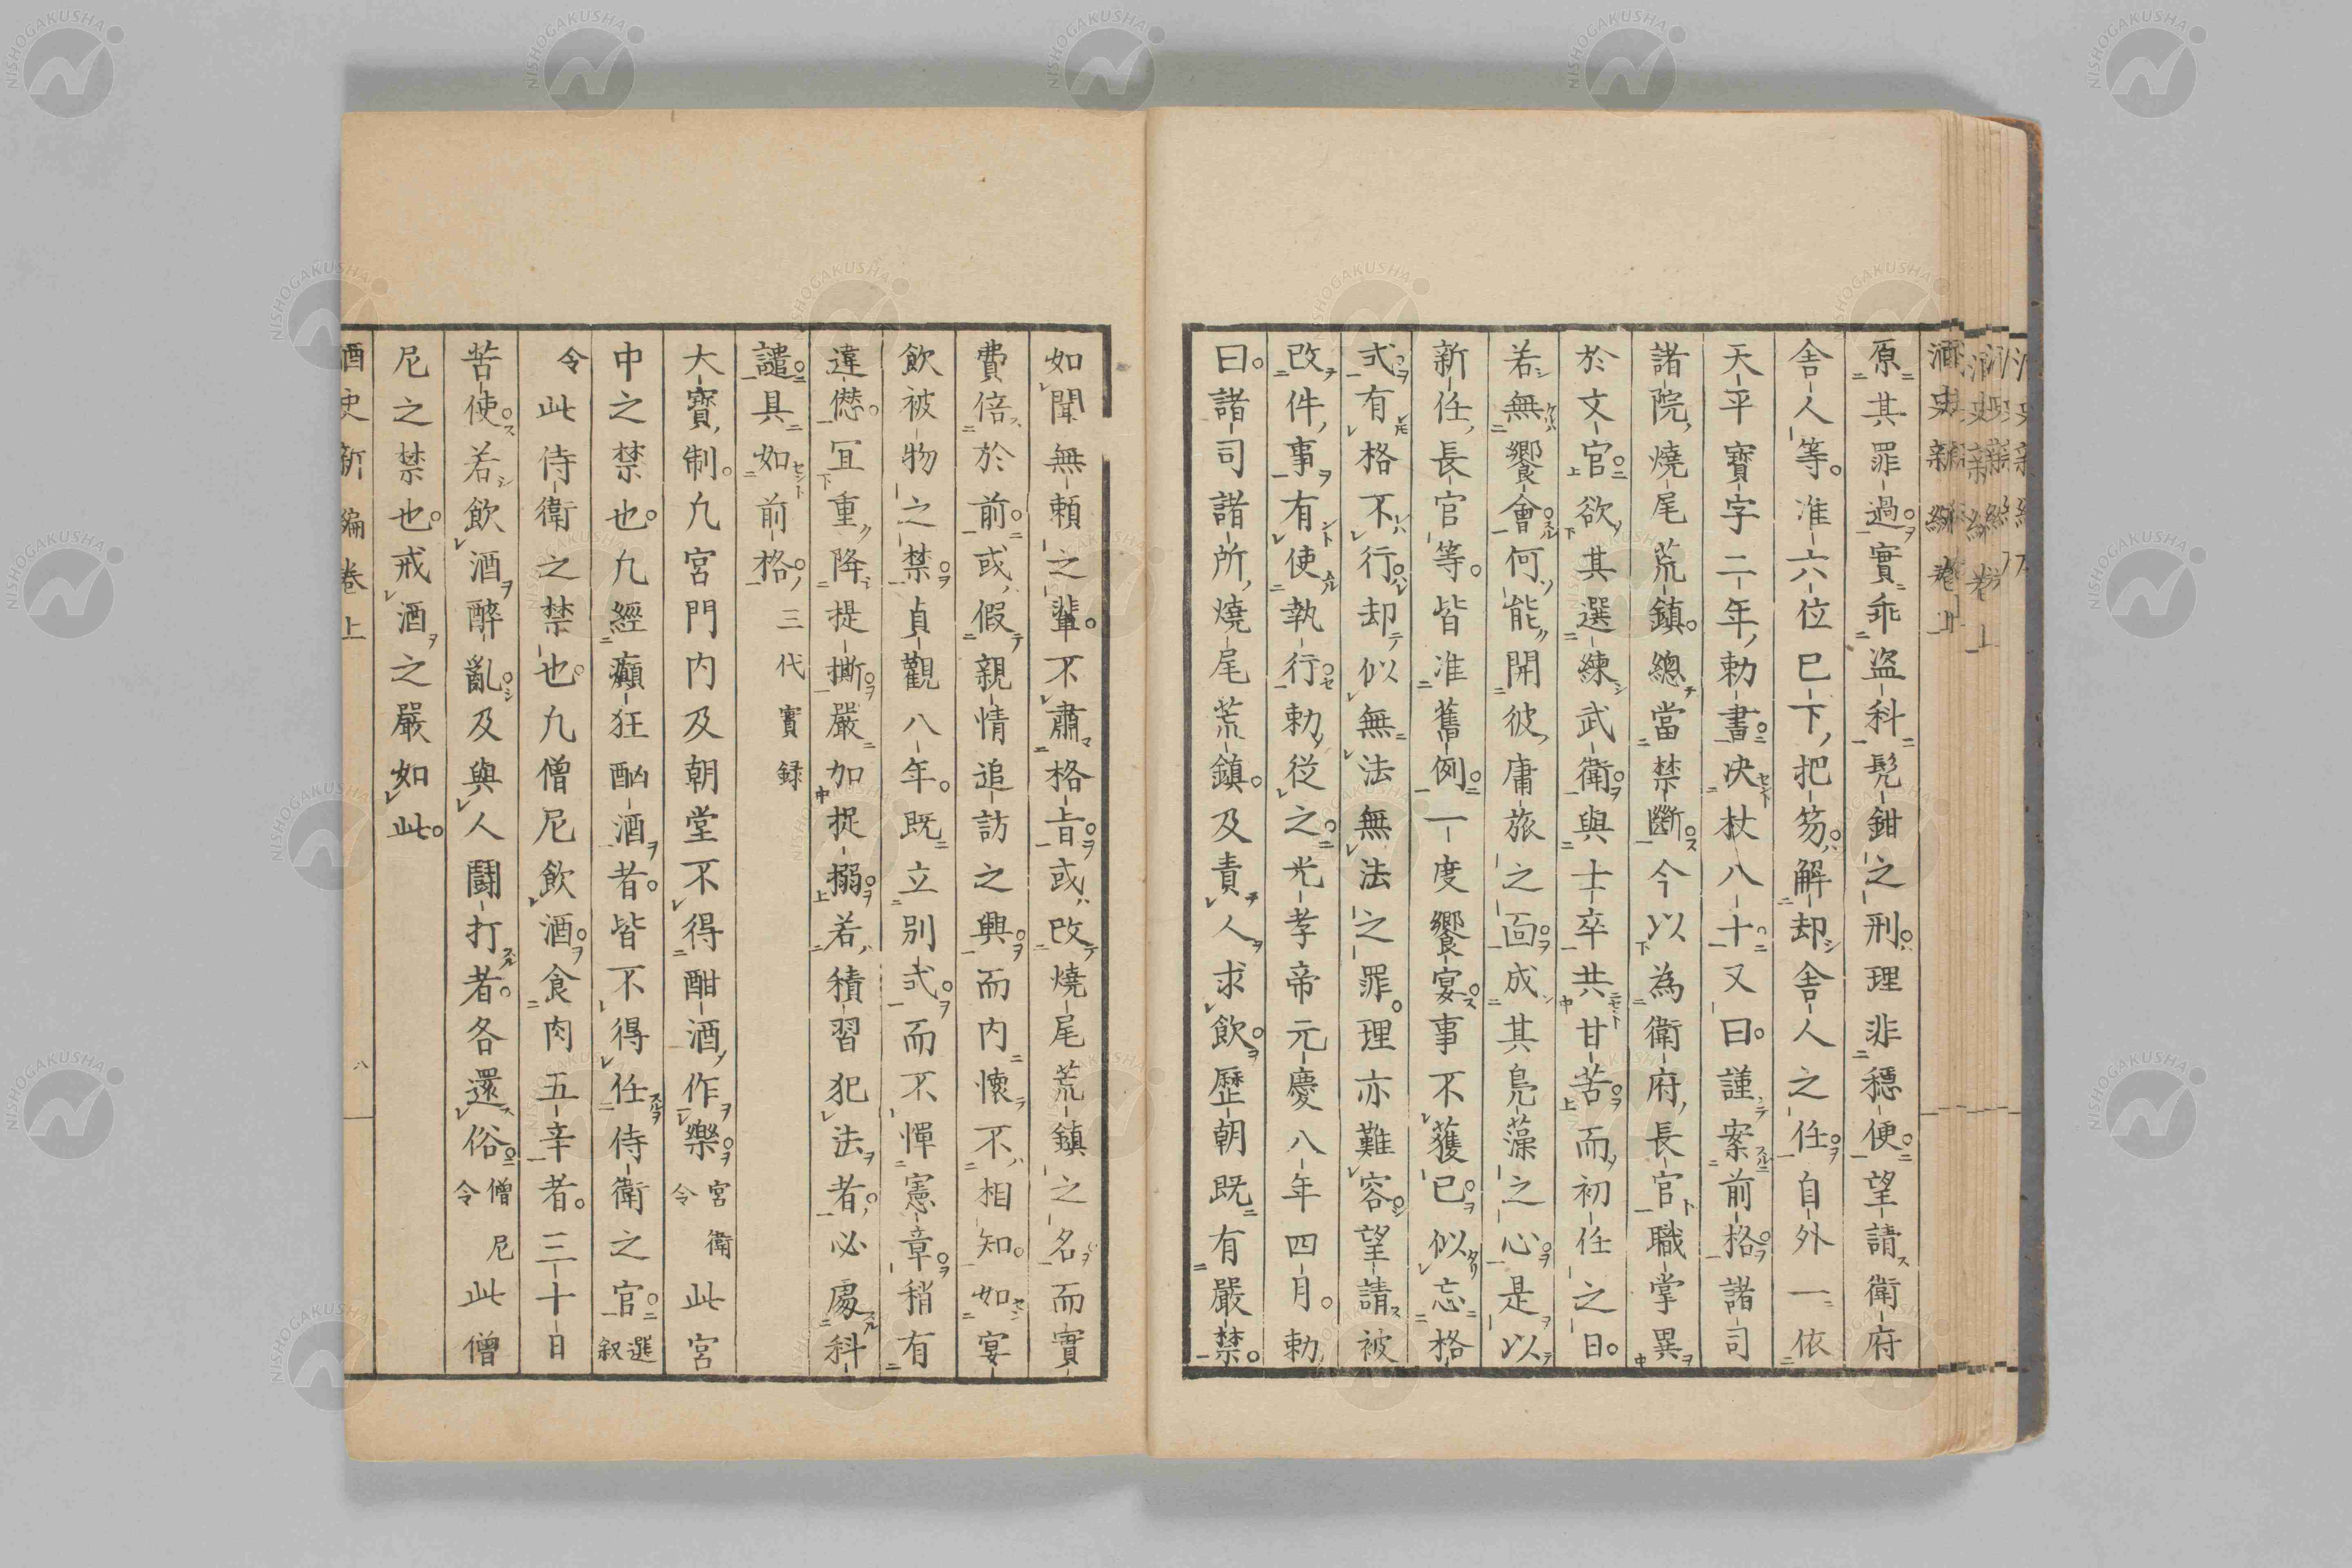 原其罪過實乖盜科髡鉗之刑理非穩便望請衛府
舍人等准六位已下把笏解却舍人之任自外一依
天平寶字二年勅書决杖八十又曰謹案前格諸司
諸院燒尾荒鎮總當禁斷今以為衛府長官職掌異
於文官欲其選練武衛與士卒共甘苦而初任之日
若無饗會何能開彼庸旅之面成其鳧藻之心是以
新任長官等皆准舊例一度饗宴事不獲已似忘格
式有格不行却似無法無法之罪理亦難容望請被
改件事有使執行勅從之光孝帝元慶八年四月勅
曰諸司諸所燒尾荒鎮及責人求飲歷朝既有嚴禁
如聞無賴之輩不肅格旨或改燒尾荒鎮之名而實
費倍於前或假親情追訪之興而內懷不相知如宴
飲被物之禁貞觀八年既立別式而不憚憲章稍有
違僁冝重降提撕嚴加捉搦若積習犯法者必處科
譴具如前格三代實録
大寶制凡宮門内及朝堂不得酣酒作樂宮衛令此宮
中之禁也凡經癲狂酗酒者皆不得任侍衛之官選叙
令此侍衛之禁也凡僧尼飲酒食肉五辛者三十日
苦使若飲酒醉亂及與人鬪打者各還俗僧尼令此僧
尼之禁也戒酒之嚴如此
酒史新編卷上
八
NISHOGAKUSHA